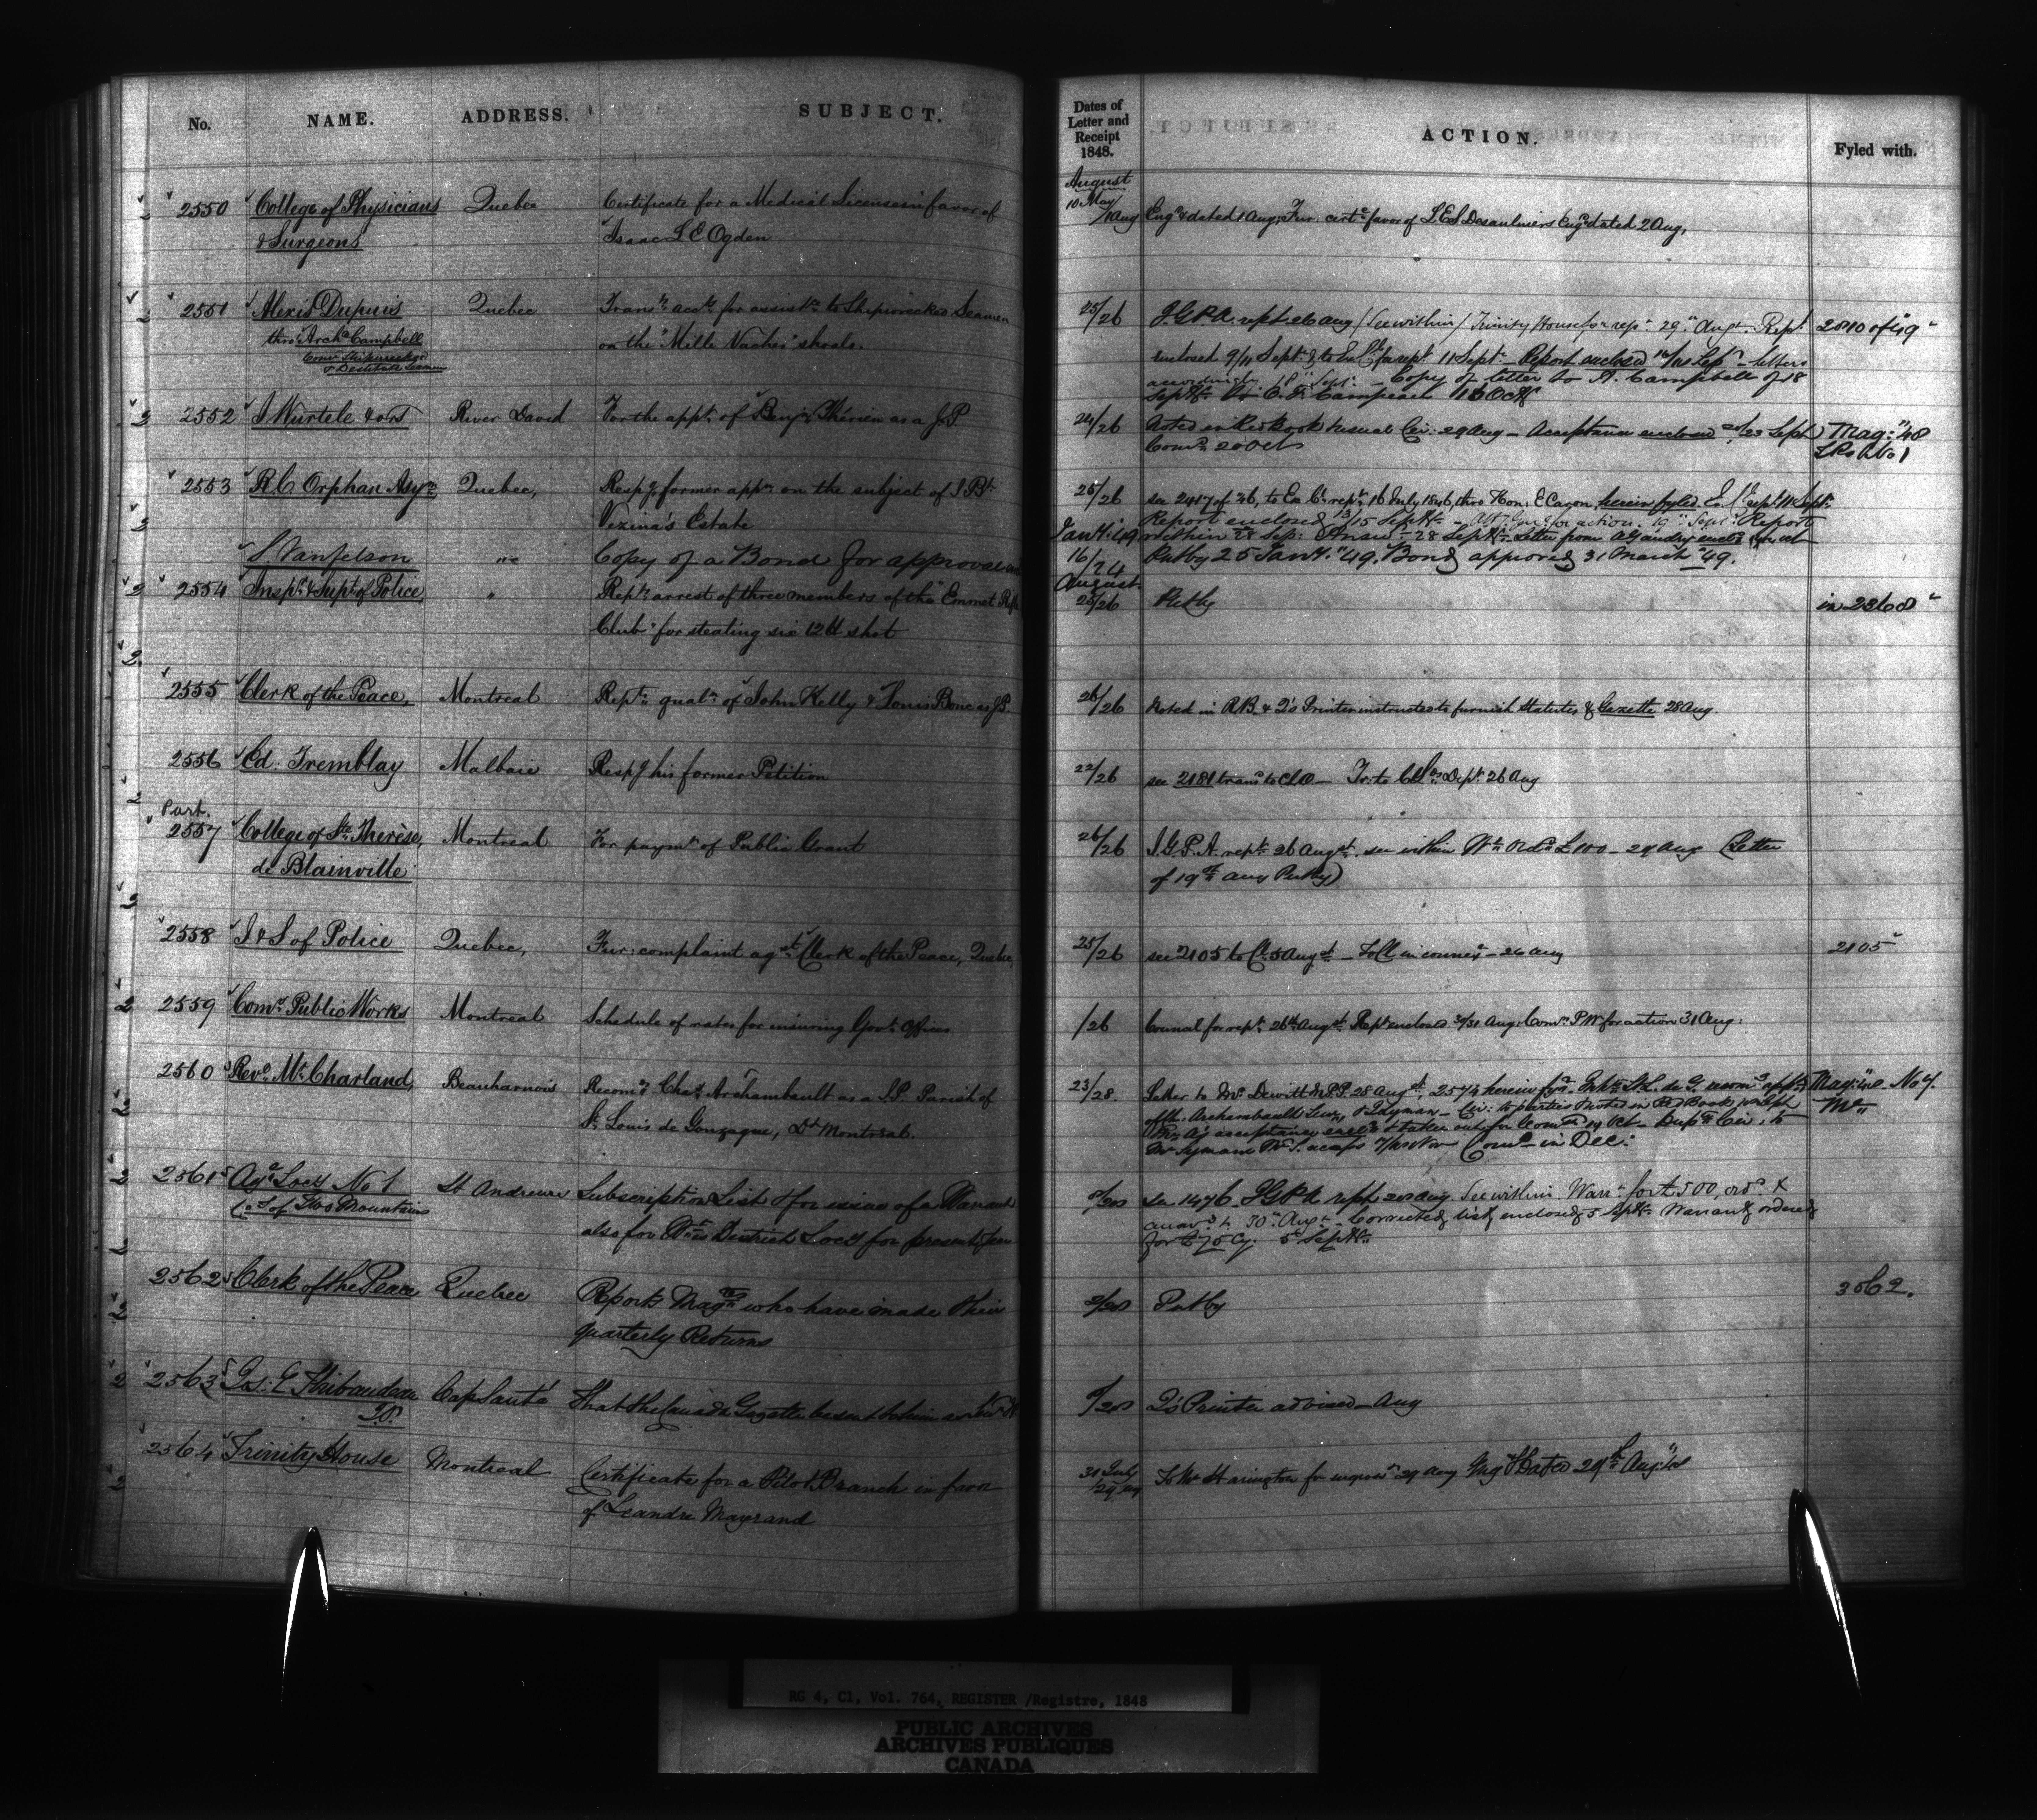 No. NAME. ADDRESS. SUBJECT.
Dates of Letter and Receipt 1848. ACTION. Fyled with.
August
2550 College of Physicians Quebec Certificate for a Medical License in favor of
& Surgeons Isaac L E Ogden
10 May / 1 Aug Eng'd & dated 1 Aug; Fur: cert: favor of L.E.S Desaulniers Eng'd dated 2 Aug,
2551 Alexis Dupuis Quebec Trans'g acct for assist'ce to Shipwrecked Seamen
thro' Arch'd Campbell on the "Mille Vaches" shoals.
Com'r Shipwrecked
& Destitute Seamen
25/26 I.G.P.A. rept 26 Aug / See within / Trinity House for rep't 29th Augt Rept
enclosed 9/11 Septr & to Ex. Cl for rept 11 Septr Report enclosed
accordingly 18th Septr. Copy of letter to A. Campbell of 18
2552 J Wurtele & ors River David For the appt of Benj: Thérien as a J.P
24/26 Noted in Red Book & usual Cir: 29 Aug – Acceptance enclosed Sept
Comn 20 Oct
Mag: "48
2553 R C Orphan Asy'm Quebec, Resp'g former appn on the subject of
Vezina's Estate
25/26 see 2417 of 46, to Ex. Cl. rept 16 July 1846, thro Hon: E Caron herein fyled.
Report enclosed 13/15 Septr – Atty Genl for action. 19th Septr Report
within 28 Sep:
S. Vanfelson Copy of a Bond for approval
Jany: 49 16/24 Putby 25 Jany. "49. Bond approved 31 March "49.
August
2554 Insp'r & Supt of Police " Rept arrest of three members of the "Emmet Rifle
Club" for stealing six 12 lb shot
25/26 Putby in 2368
2555 Clerk of the Peace, Montreal Repts qualn of John Kelly & Louis Bone as J.P.
26/26 Noted in R.B. & Q's Printer instructed to furnish Statutes & Gazette 28 Aug.
2556 Ed: Tremblay Malbaie Resp'g his former Petition
22/26 see 2181 trans to CLO – Tr: to C L's Dept 26 Aug
Part.
2557 College of Ste Therèse, Montreal For paymt of Public Grant
de Blainville
26/26 I.G.P.A. rept 26 Augst. see within Wt Ord £100 – 29 Aug (Letter
of 19th Aug Putby)
2558 I & S of Police Quebec, Fur: complaint agst Clerk of the Peace, Quebec
25/26 see 2105 to Cl: 5 Augst – To Cl in connex – 26 Aug 2105
2559 Comrs Public Works Montreal Schedule of rates for insuring Govt Offices
/26 Council for rept 26th Augst. Rept enclosed 30/31 Aug: Comrs P.W for action 31 Aug:
2560 Revd Mr Charland, Beauharnois Recomg Chas Archambault as a J.P. Parish of
St. Louis de Gonzague, Dt Montreal.
23/28. Letter to Mr Dewitt M.P.P. 28 Augst, 2574 herein fyd
Comn – in Dec:
2561 Agl Socy No 1 St Andrews Subscription List & for issue of a Warrant
Co: of Two Mountains also for Wts District Socy for present year
/28 See 1476. I.G.P.A rept 28 Aug. See within Warrt for £500, ord &
answd 30th Augt – Corrected list enclosed 5 Sept: Warrant ordered
for £75 Cy. 5th Sept:
2562 Clerk of the Peace Quebec Reports Magtes who have made their
quarterly Returns
/28 Putby 3562.
2563 E Thibaudeau Cap Santé That the Canada Gazette be sent to him
J.P.
/28 Q's Printer advised – Aug
2564 Trinity House Montreal Certificate for a Pilot Branch in favor
of Leandre Mayrand
30 July / 29 Aug To Mr Harington for engross: 29 Aug Eng'd & Dated 29th Aug: "48
RG 4, C1, Vol. 764, REGISTER /Registre, 1848
PUBLIC ARCHIVES
ARCHIVES PUBLIQUES
CANADA